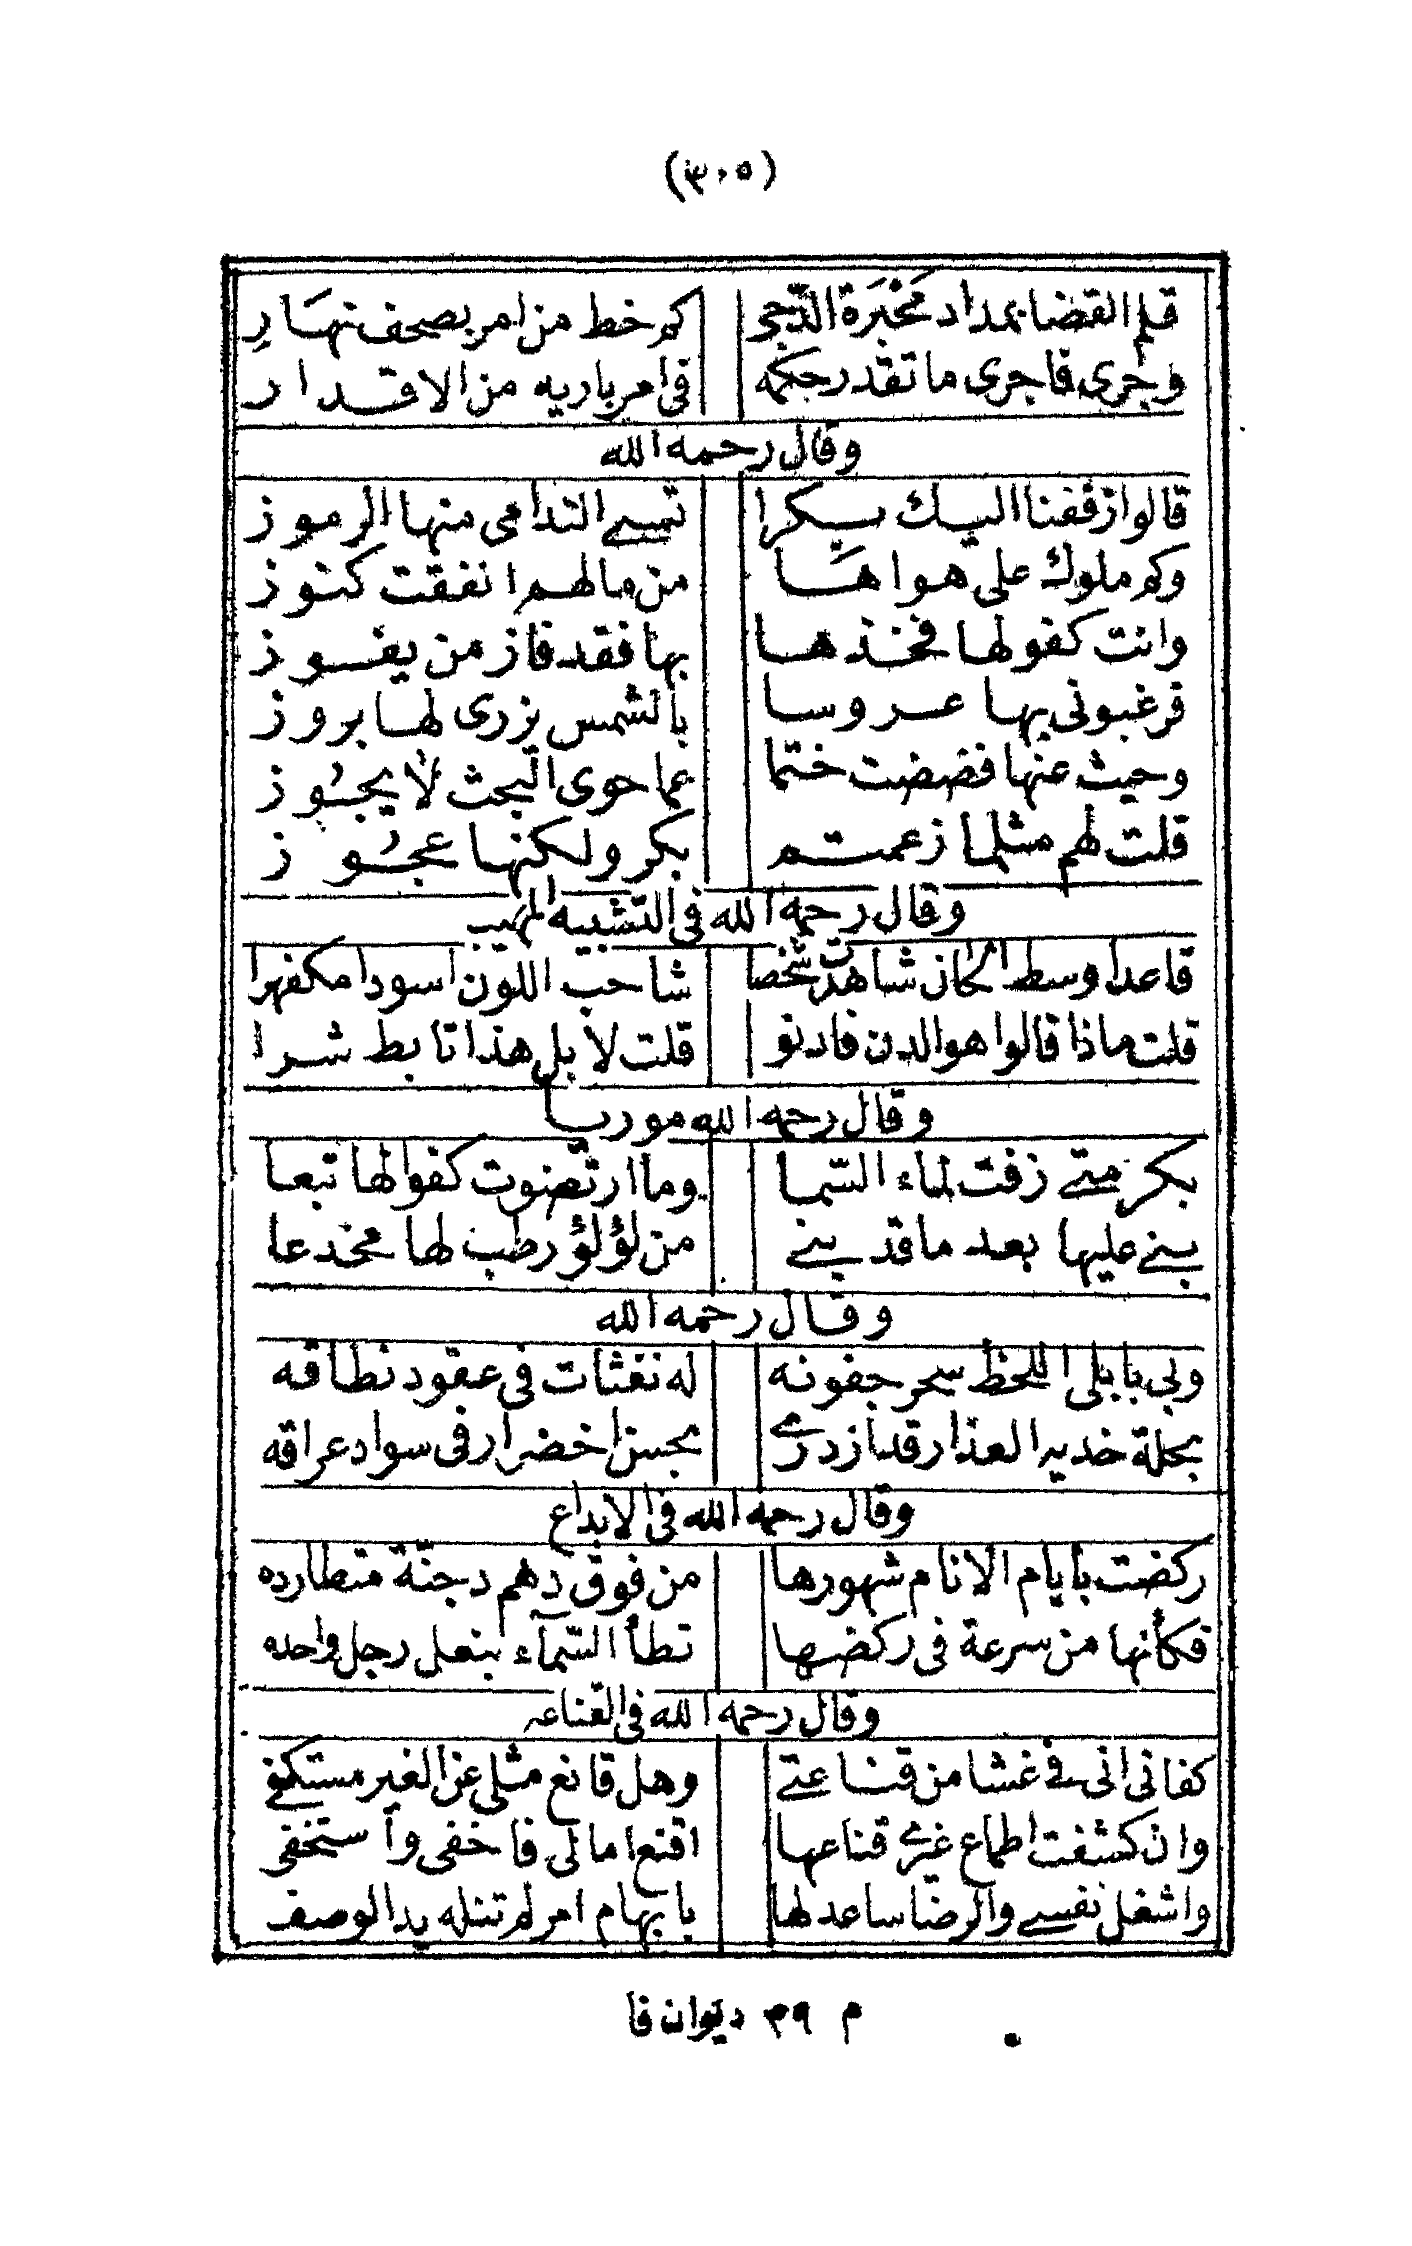 (٣٠٥)
قلم القضا بمداد مَحْبَرَة الدّجى كم خط من امر بصحف نهَارِ
وجرى فاجرى ما تقدر حكمه فى امر باريه من الاقدار
وقال رحمه الله
قالوا زففنا اليك بكرا تمسى الندامى منها الرموز
وكم ملوك على هواهَا من مالهم انفقت كنوز
وانت كفو لها فخذها بها فقد فاز من يفوز
فرغبونى بها عروسا بالشمس يزرى لها بروز
وحيث عنها فضضت ختما عما حوى البحث لا يجُوز
قلت لهم مثلما زعمتم بكر ولكنها عجُوز
وقال رحمه الله فى التشبيه المهيب
قاعدا وسط الحان شاهدت شخصا شاحب اللون اسودا مكفهرا
قلت ماذا قالوا هو الدن فادنو قلت لا بل هذا تابط شرا
وقال رحمه الله موريا
بكر متى زفت لماء السّما وما ارتضوت كفوا لها تبعا
بنى عليها بعد ما قد بنى من لؤلؤ رطب لها مخدعا
وقال رحمه الله
وبى بابلى اللحظ سحر جفونه له نفثات فى عقود نطاقه
بحلة خديه العذار قد ازدرى بحسن اخضرار فى سواد عراقه
وقال رحمه الله فى الابداع
ركضت بأيام الانام شهورها من فوق دهم دجنّة متطارده
فكأنها من سرعة فى ركضها تطأ السّمآء بنعل رجل واحده
وقال رحمه الله فى القناعه
كفانى انى فى غشا من قناعتى وهل قانع مثلى عن الغير مستكفى
وان كشفت اطماع غيرى قناعها اقنع امالى فاخفى وأستخفى
واشغل نفسى والرضا ساعد لها بابهام امر لم تنله يد الوصف
م ٣٩ ديوان فا